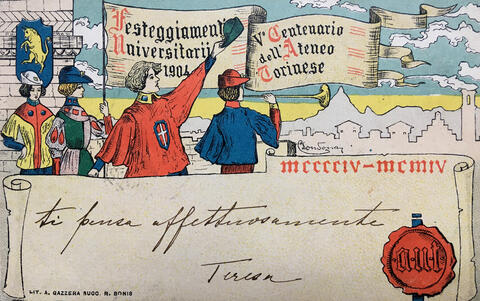 Festeggiamenti
Universitarii
1904
Vº Centenario
dell'Ateneo
Torinese
MCCCCIV-MCMIV
ti pensa affettuosamente
Teresa
a.u.t.
LIT. A. GAZZERA SUCC. R. BONIS